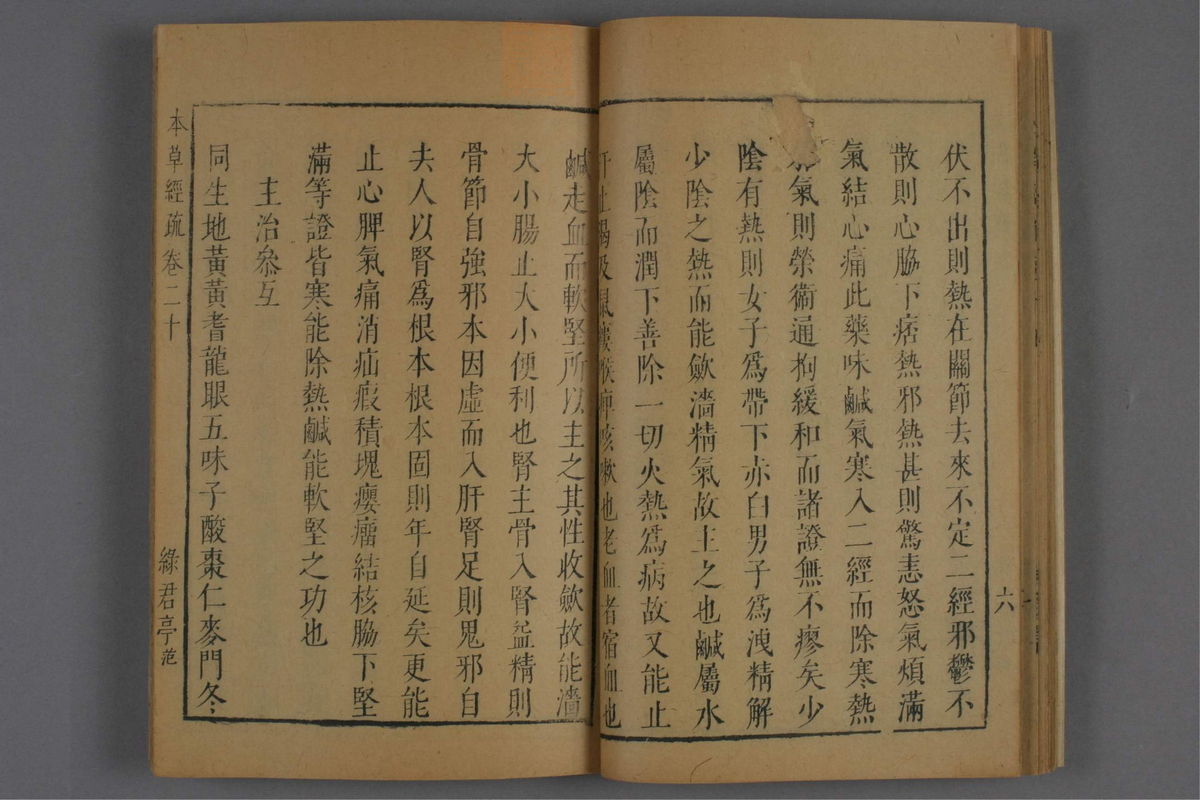 伏不出則熱在關節去來不定二經邪鬱不
散則心脇下痞熱邪熱甚則驚恚怒氣煩滿
氣結心痛此藥味鹹氣寒入二經而除寒熱
邪氣則榮衛通拘緩和而諸證無不瘳矣少
陰有熱則女子爲帶下赤白男子爲洩精解
少陰之熱而能歛濇精氣故主之也鹹屬水
屬陰而潤下善除一切火熱爲病故又能止
汗止渴及鼠瘻喉痺咳嗽也老血者宿血也
鹹走血而軟堅所以主之其性收歛故能濇
大小腸止大小便利也腎主骨入腎益精則
骨節自強邪本因虛而入肝腎足則鬼邪自
去人以腎爲根本根本固則年自延矣更能
止心脾氣痛消疝瘕積塊癭瘤結核脇下堅
滿等證皆寒能除熱鹹能軟堅之功也
主治叅互
同生地黃黃耆龍眼五味子酸棗仁麥門冬
本草經疏 卷二十
綠君亭 范
六